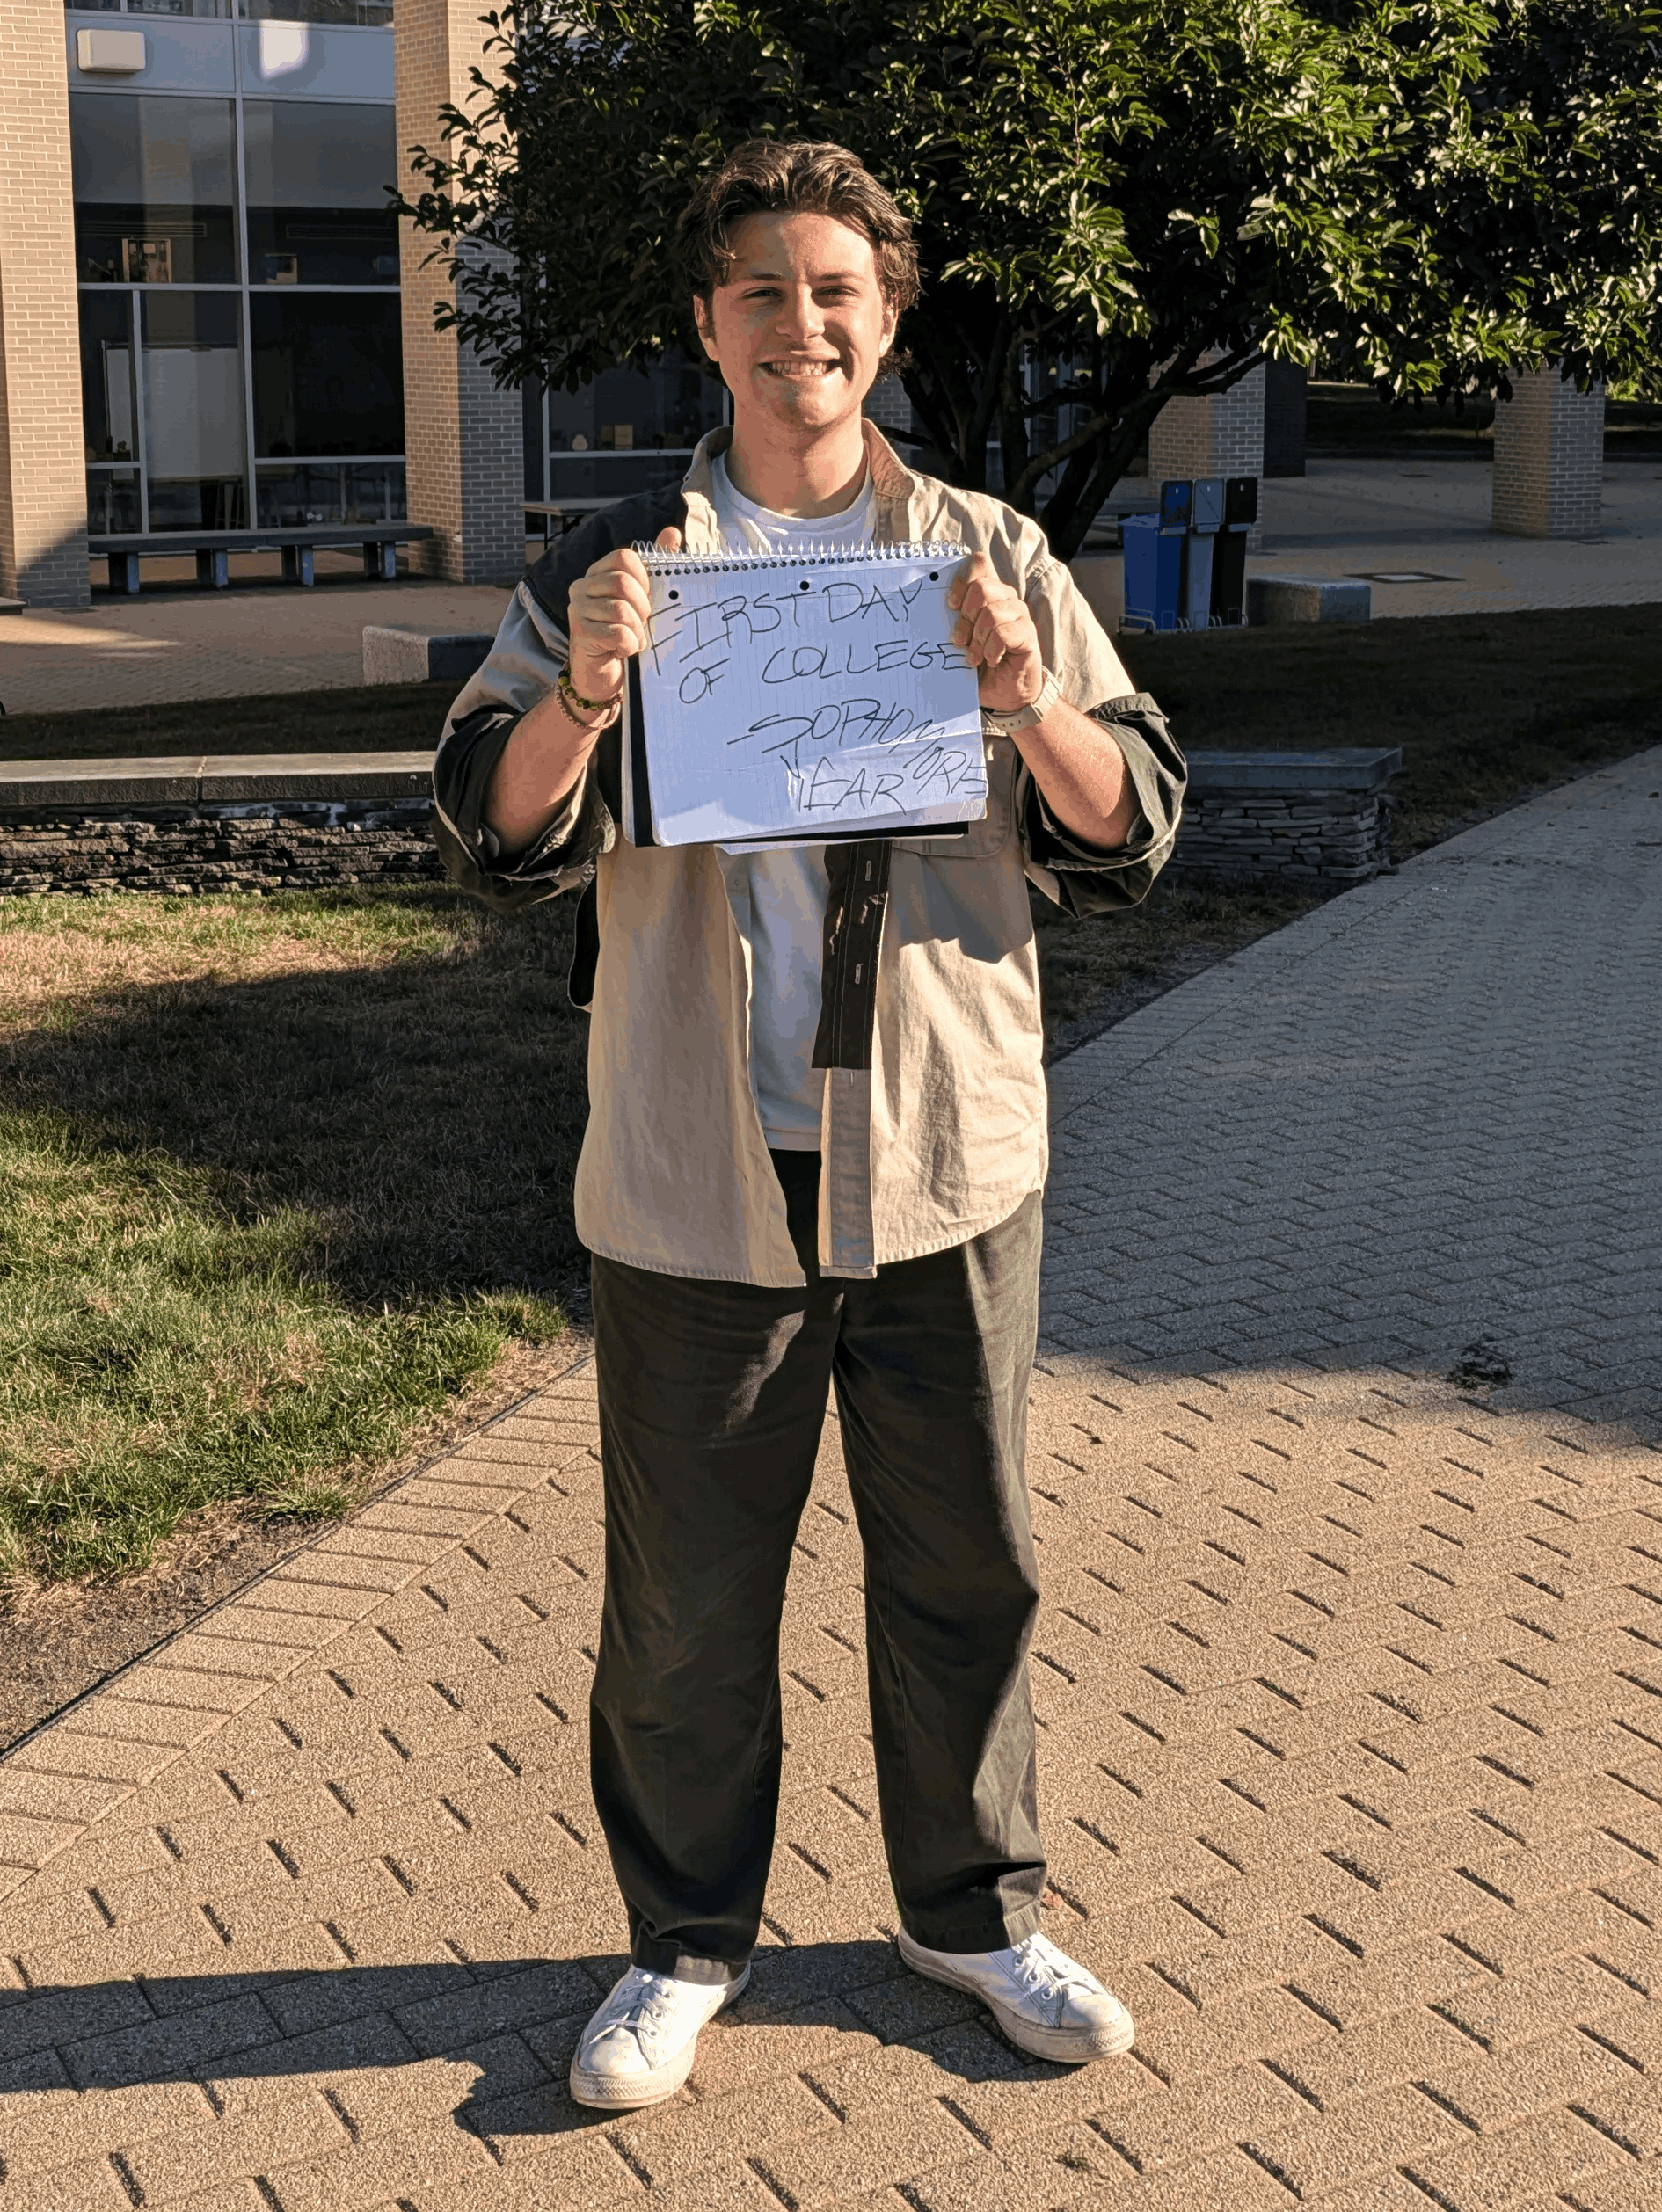 FIRST DAY
OF COLLEGE
-SOPHOMORE
YEAR